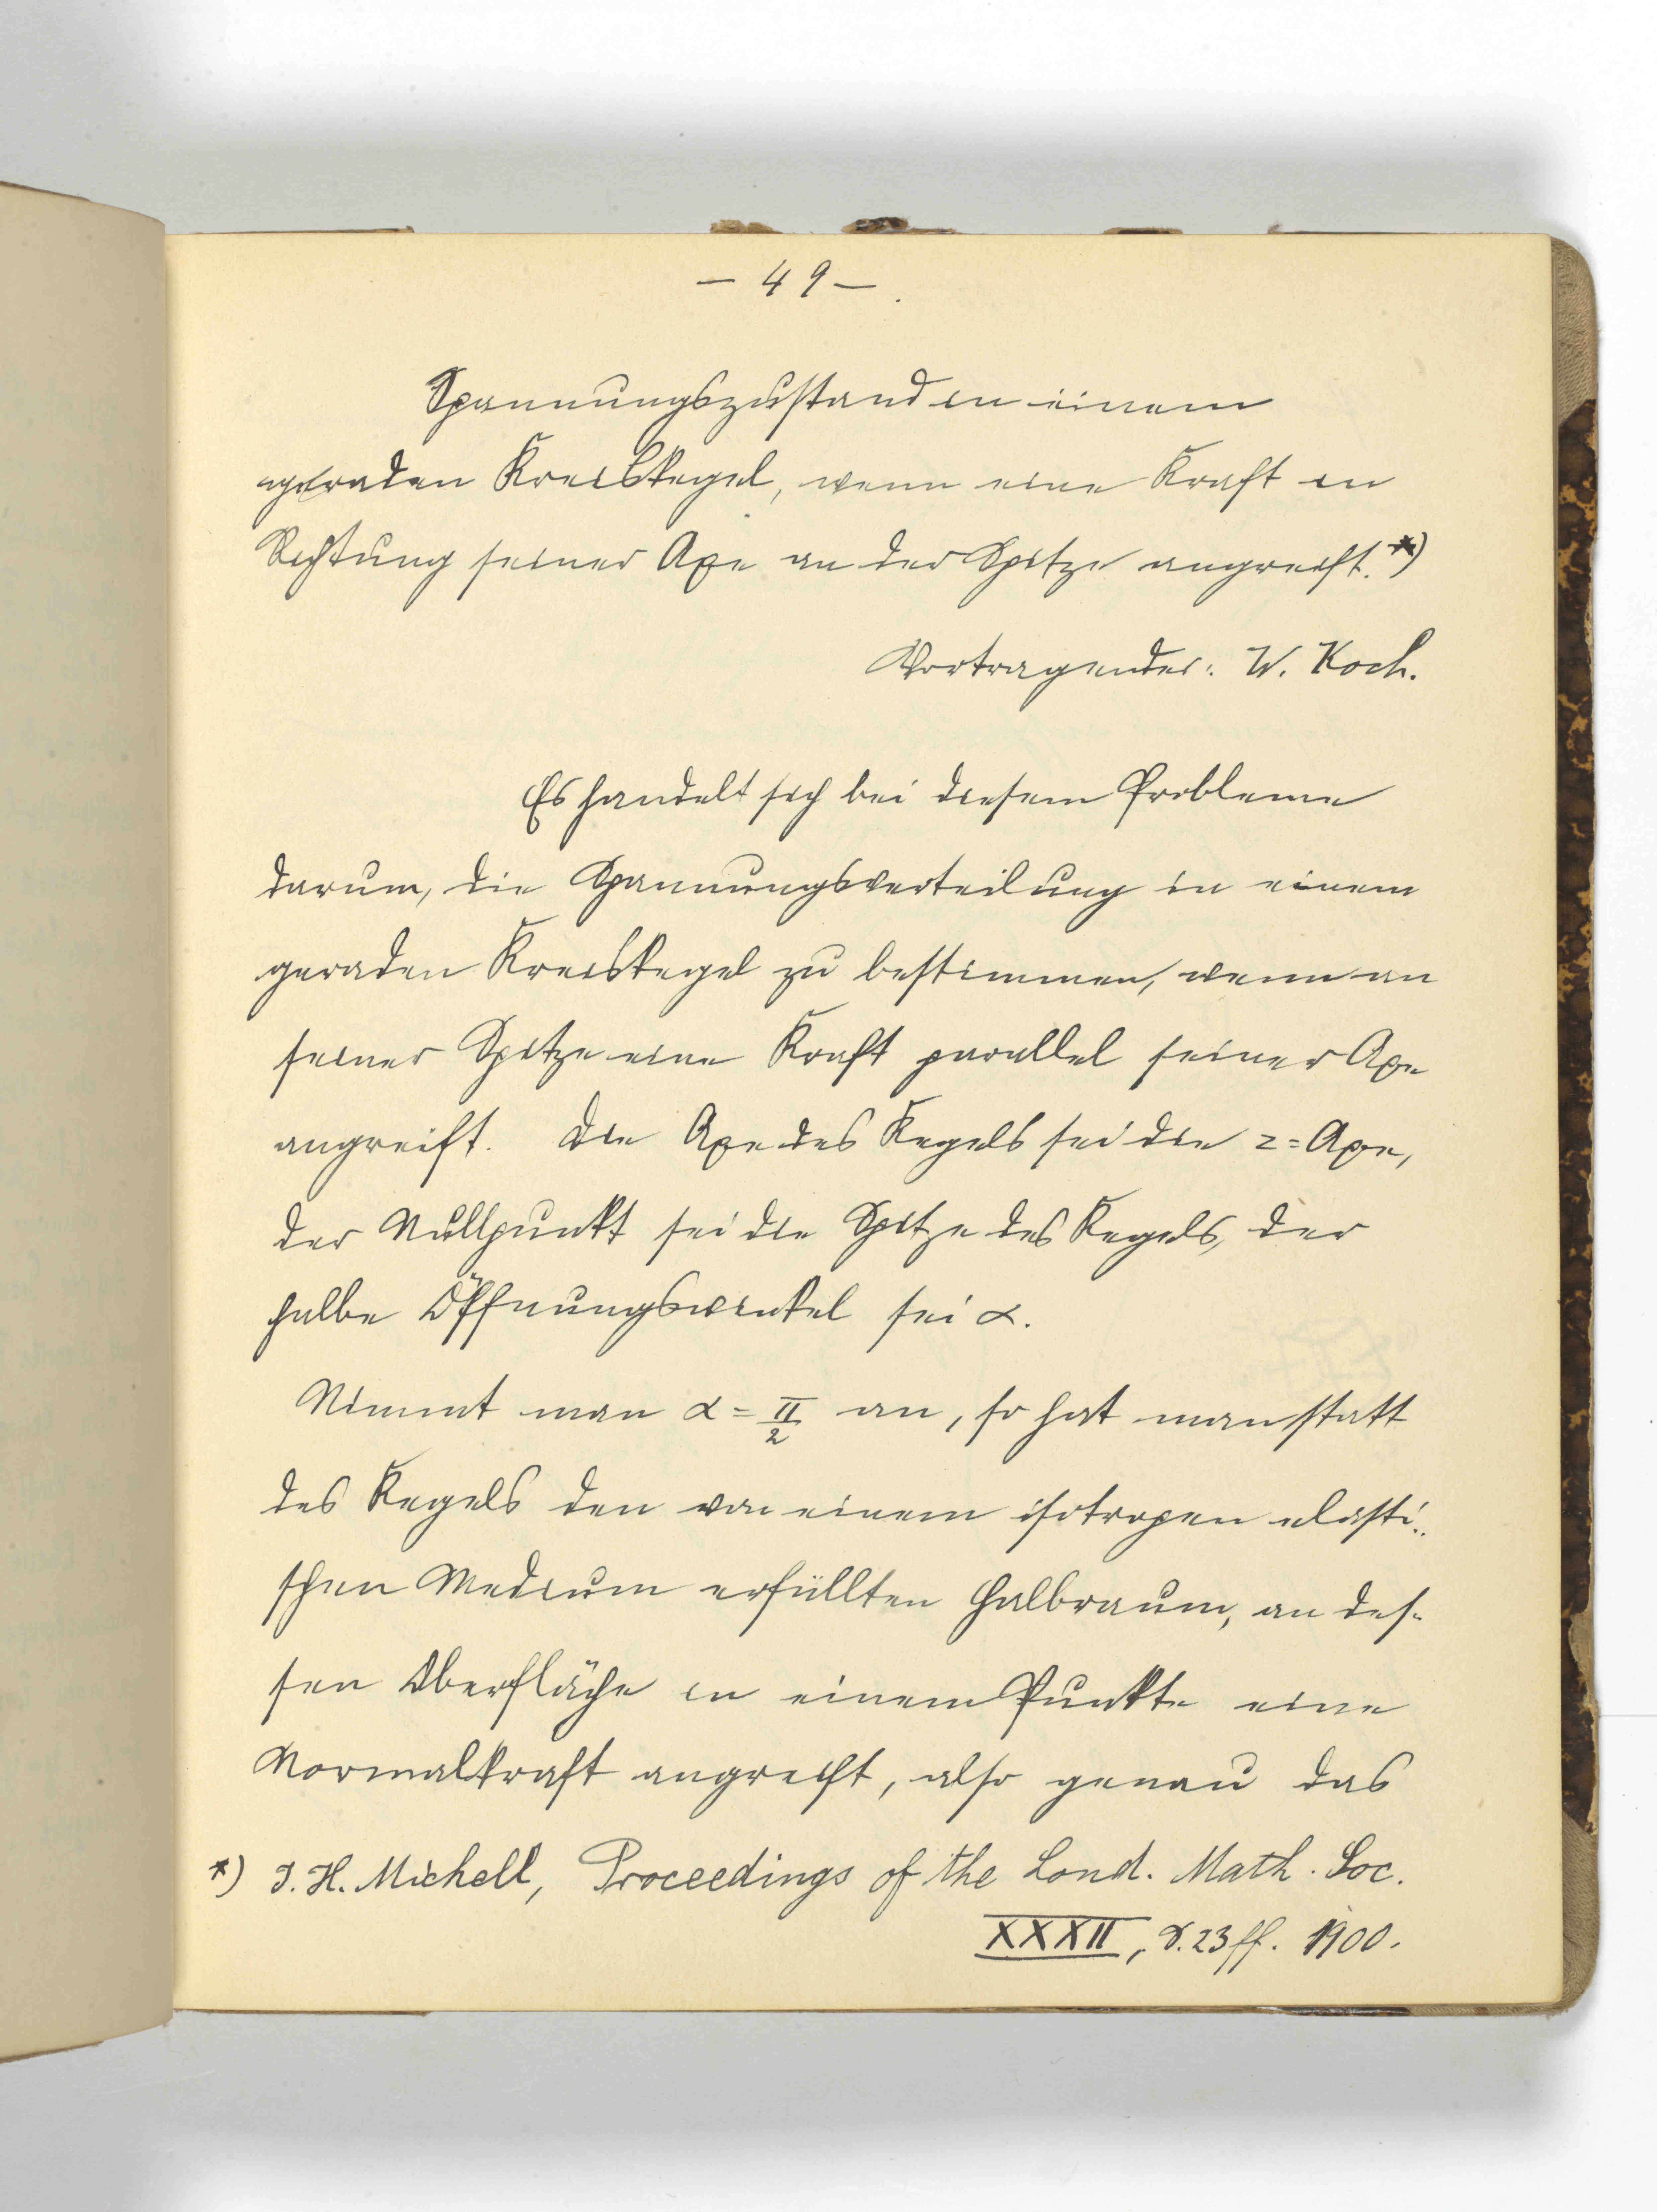 – 49 –.
Spannungszustand in einem
geraden Kreiskegel, wenn eine Kraft in
Richtung seiner Axe an der Spitze angreift.*)
Vortragender: W. Koch.
Es handelt sich bei diesem Probleme
darum, die Spannungsverteilung in einem
geraden Kreiskegel zu bestimmen, wenn an
seiner Spitze eine Kraft parallel seiner Axe
angreift. Die Axe des Kegels sei die z=Axe,
der Nullpunkt sei die Spitze des Kegels, der
halbe Öffnungswinkel sei α.
Nimmt man α = π/2 an, so hat man statt
des Kegels den von einem isotropen elasti-
schen Medium erfüllten Halbraum, an des-
sen Oberfläche in einem Punkte eine
Normalkraft angreift, also genau das
*) J. H. Michell, Proceedings of the Lond. Math. Soc.
XXXII, S. 23 ff. 1900.